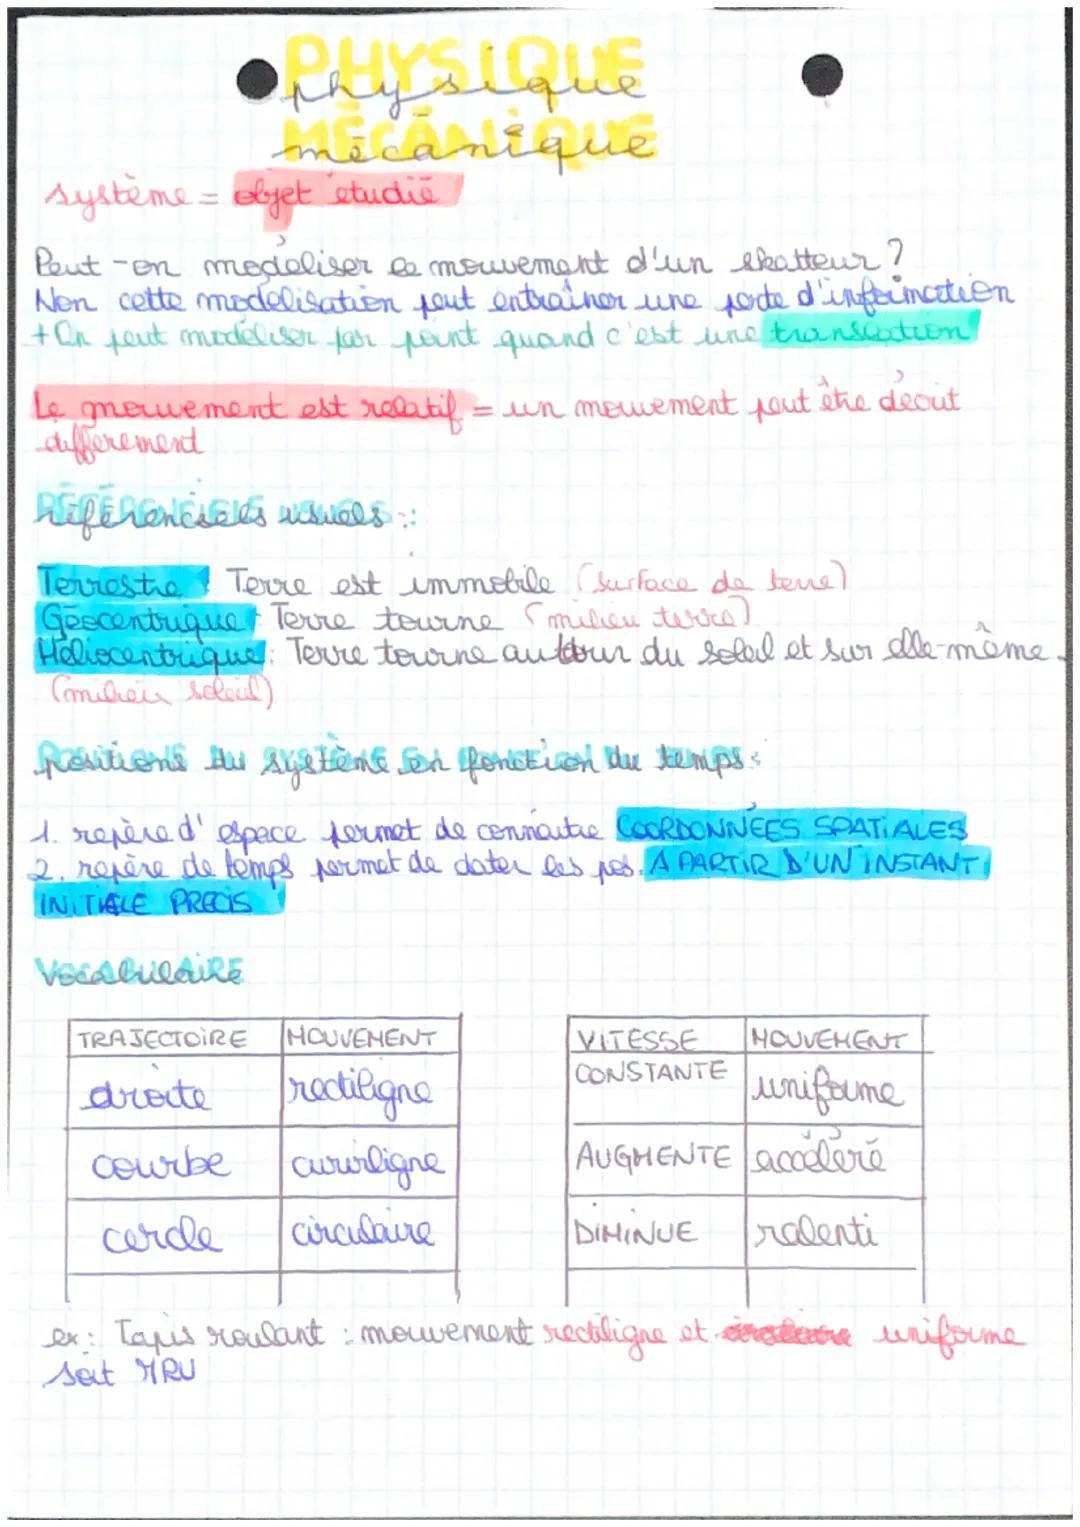 PHYSIQUE
physique
MÉCANIQUE
mécanique
système = objet étudié
Peut-on modéliser le mouvement d'un skatteur ?
Non cette modélisation peut entraîner une perte d'information
+ On peut modéliser par point quand c'est une translation
Le mouvement est relatif = un mouvement peut être décrit
différement
RÉFÉRENCIELS USUELS
référenciels usuels :
Terrestre : Terre est immobile (surface de terre)
Géocentrique : Terre tourne (milieu terre)
Héliocentrique : Terre tourne autour du soleil et sur elle-même.
(milieu soleil)
Positions du système en fonction du temps :
1. repère d'espace permet de connaitre COORDONNÉES SPATIALES
2. repère de temps permet de dater les pos. A PARTIR D'UN INSTANT
INITIALE PRECIS
Vocabulaire
TRAJECTOIRE MOUVEMENT
droite rectiligne
courbe curviligne
cercle circulaire
VITESSE MOUVEMENT
CONSTANTE uniforme
AUGMENTE accéléré
DIMINUE ralenti
ex : Tapis roulant : mouvement rectiligne et uniforme
soit MRU